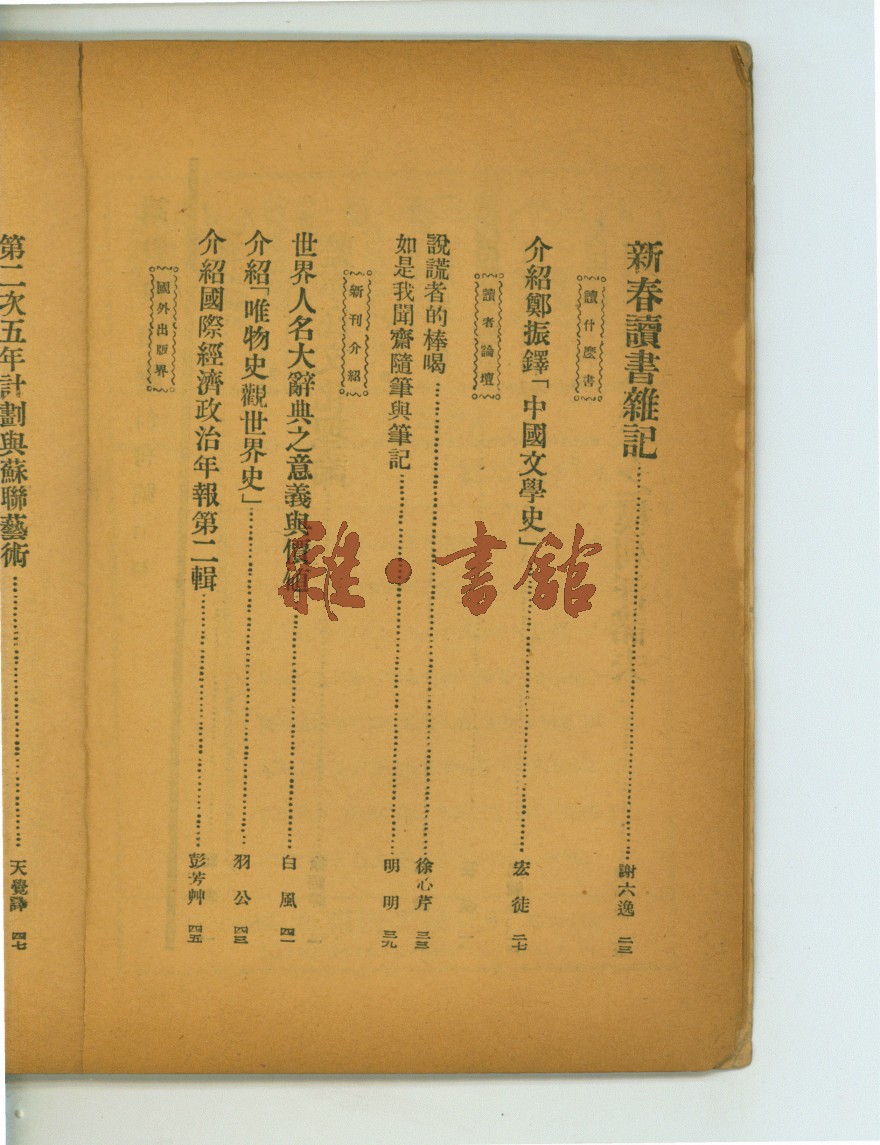 新春讀書雜記……謝六逸 二三
讀什麽書
介紹鄭振鐸「中國文學史」……宏徒 二七
讀者論壇
說謊者的棒喝……徐心芹 三三
如是我聞齋隨筆與筆記……明明 三九
新刊介紹
世界人名大辭典之意義與價值……白風 四一
介紹「唯物史觀世界史」……羽公 四三
介紹國際經濟政治年報第二輯……彭芳艸 四五
國外出版界
第二次五年計劃與蘇聯藝術……天覺譯 四七
雜·書館